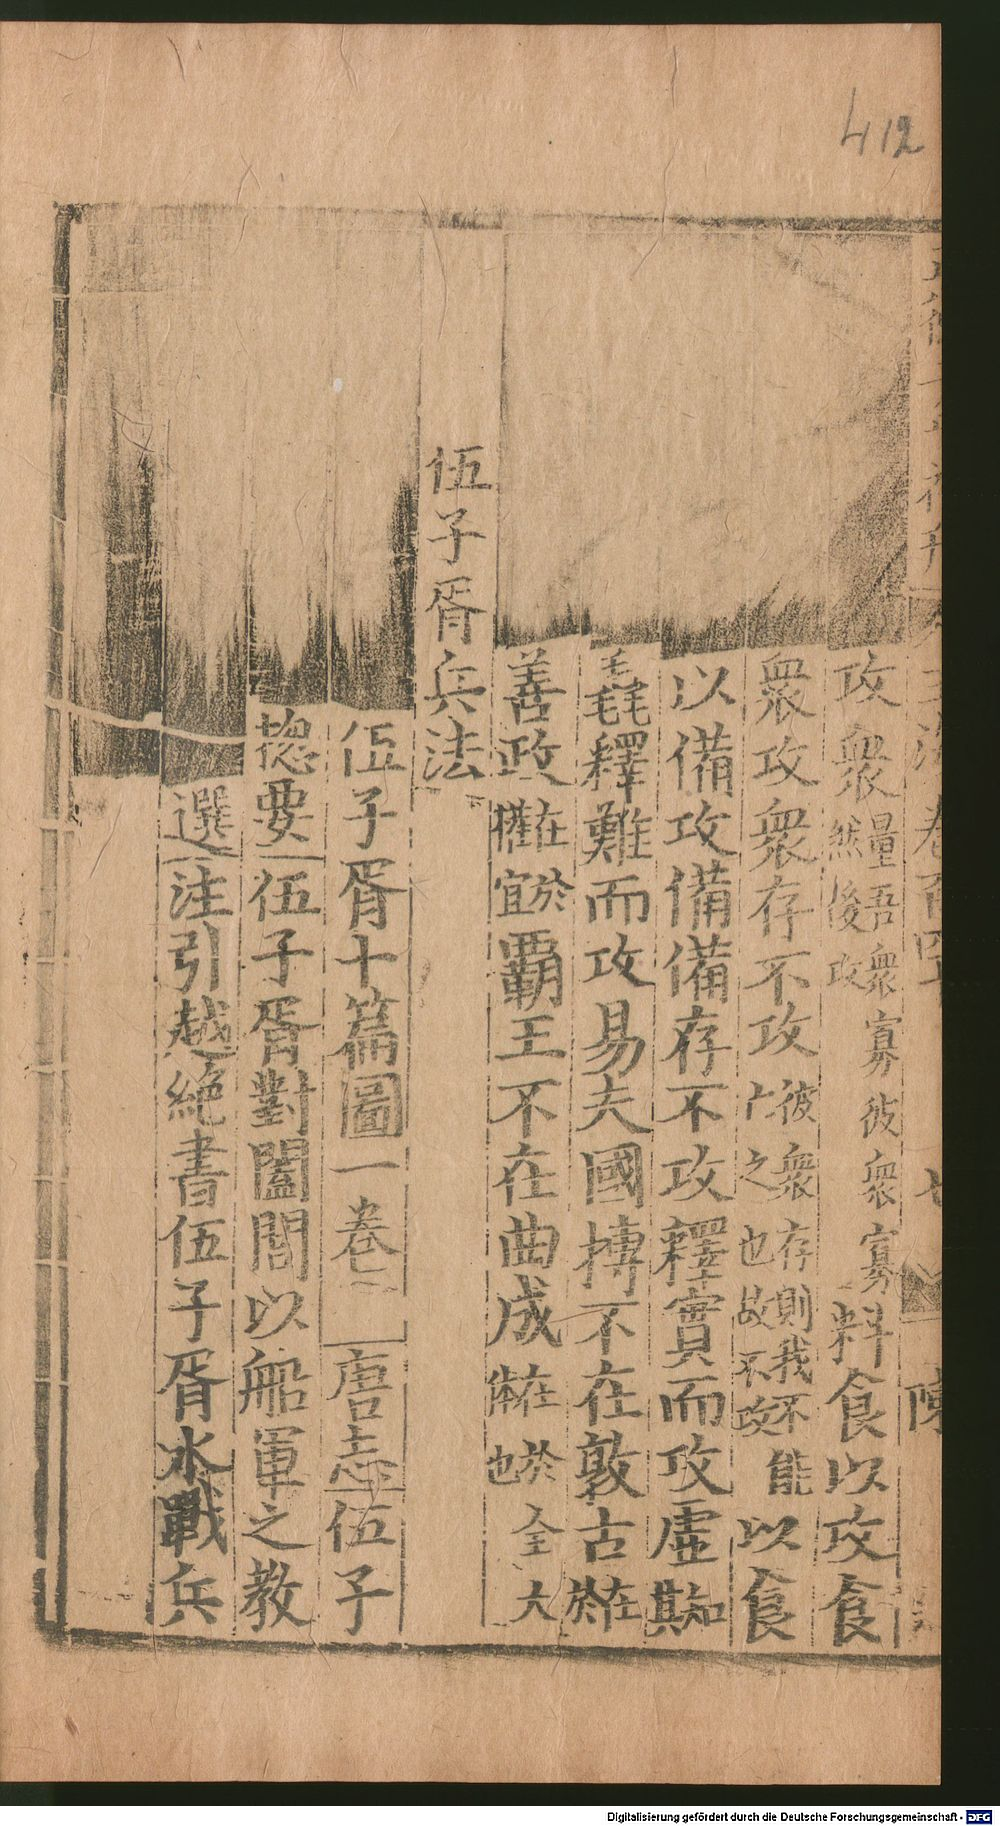 412
攻衆量吾衆寡彼衆寡然後攻料食以攻食
衆攻衆存不攻彼衆存則我不能亡之也故不攻以食
以備攻備備存不攻釋實而攻虛知其
毳釋難而攻易夫國摶不在敦古在於
善政在於權宜覇王不在曲成在於全大体也
伍子胥兵法
伍子胥十篇圖一卷 唐志伍子
揔要伍子胥對闔閭以船軍之教
選注引越絶書伍子胥水戰兵
Digitalisierung gefördert durch die Deutsche Forschungsgemeinschaft - DFG